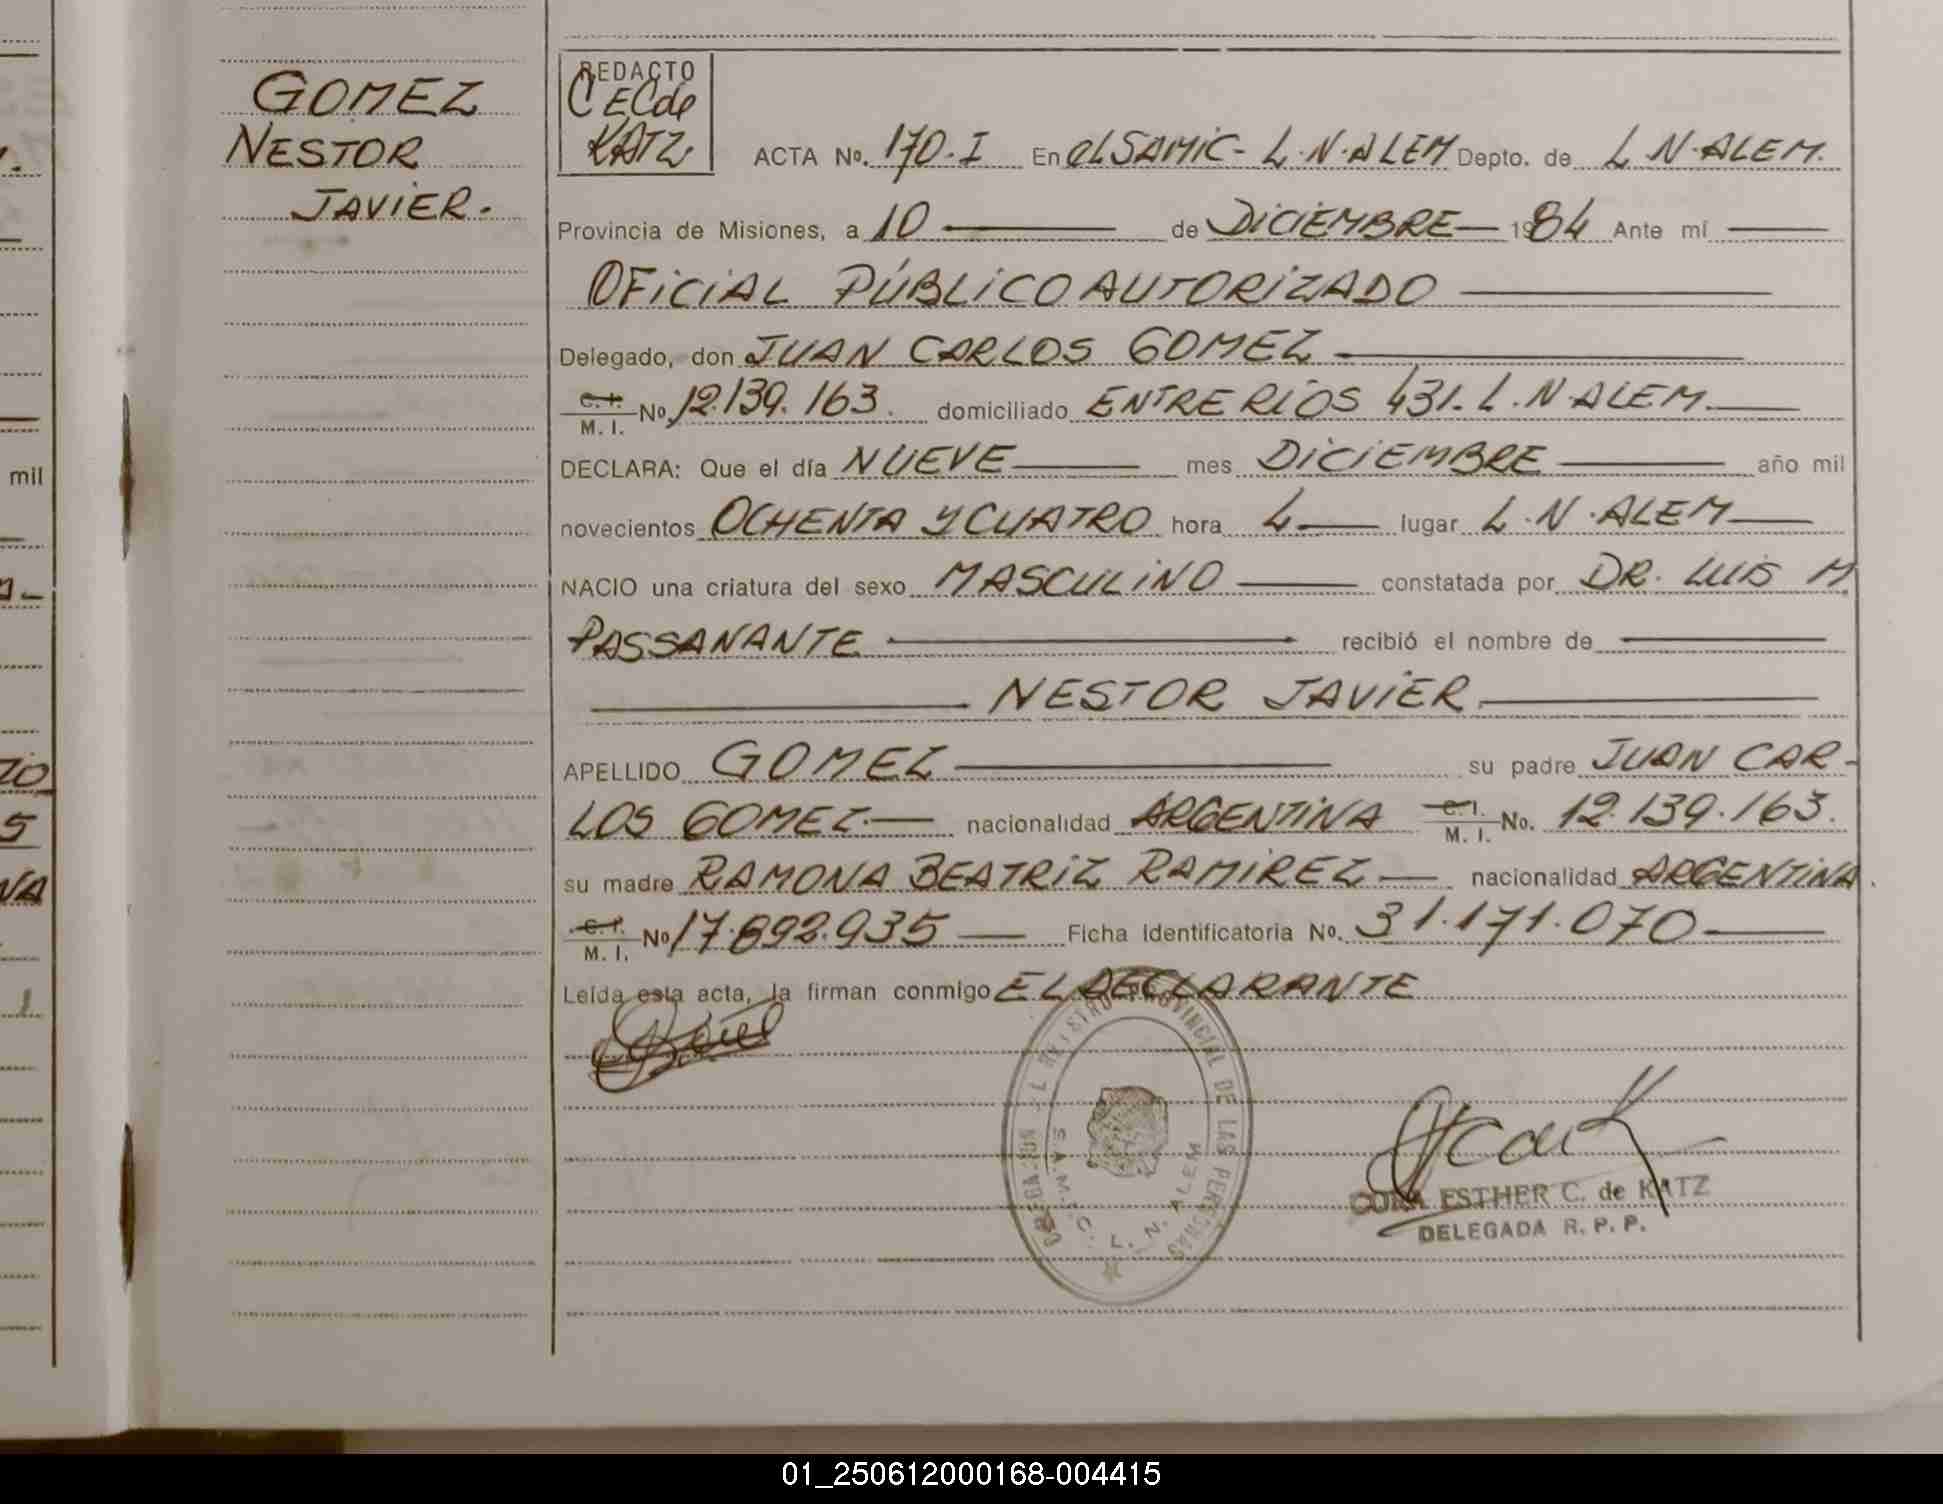 GOMEZ
NESTOR
JAVIER.
REDACTO
C EC de
KATZ
ACTA No. 170.I En el SAMIC- L.N.ALEM Depto. de L N.ALEM.
Provincia de Misiones, a 10 de DICIEMBRE 1984 Ante mí
OFICIAL PÚBLICO AUTORIZADO
Delegado, don JUAN CARLOS GOMEZ
C. I. M. I. No 12.139.163. domiciliado ENTRE RIOS 431. L.N.ALEM.
DECLARA: Que el día NUEVE mes DICIEMBRE año mil
novecientos OCHENTA Y CUATRO hora 4 lugar L.N.ALEM
NACIO una criatura del sexo MASCULINO constatada por DR. LUIS M
PASSANANTE recibió el nombre de
NESTOR JAVIER
APELLIDO GOMEZ su padre JUAN CAR-
LOS GOMEZ.- nacionalidad ARGENTINA C. I. M. I. No. 12.139.163.
su madre RAMONA BEATRIZ RAMIREZ nacionalidad ARGENTINA.
C. I. M. I. No 17.892.935 Ficha identificatoria No. 31.171.070
Leída esta acta, la firman conmigo EL DECLARANTE
REGISTRO PROVINCIAL DE LAS PERSONAS
S.A.M.I.C. L. N. ALEM
CORA ESTHER C. de KATZ
DELEGADA R. P. P.
mil
ZO
5
NA
01_250612000168-004415